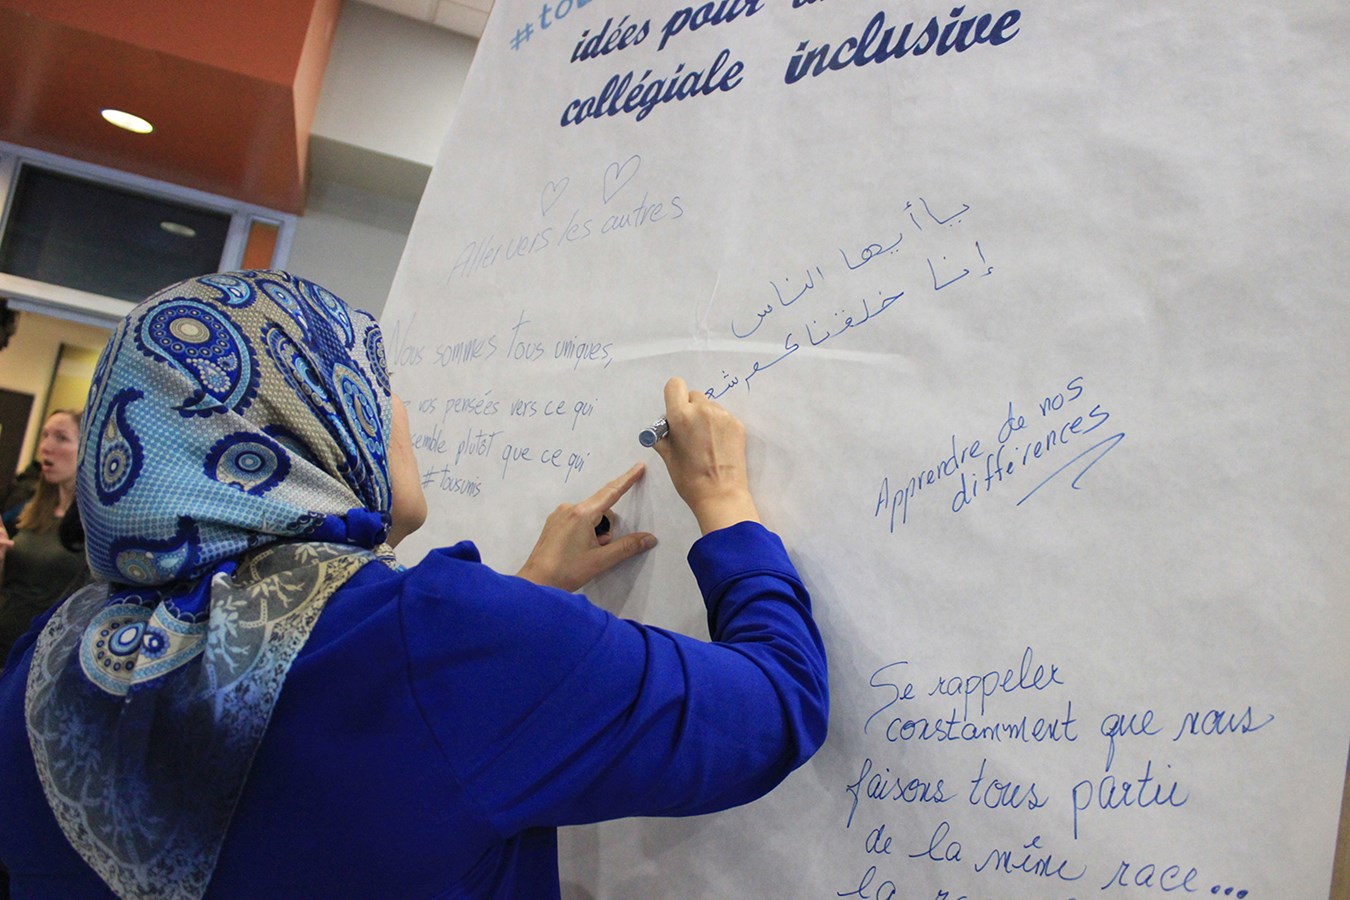 #tou
idées pour
collégiale inclusive
Aller vers les autres
يا أيها الناس
إنا خلقناكم شعو
Nous sommes tous uniques,
vos pensées vers ce qui
semble plutôt que ce qui
#tousunis
Apprendre de nos
différences
Se rappeler
constamment que nous
faisons tous partie
de la même race...
la